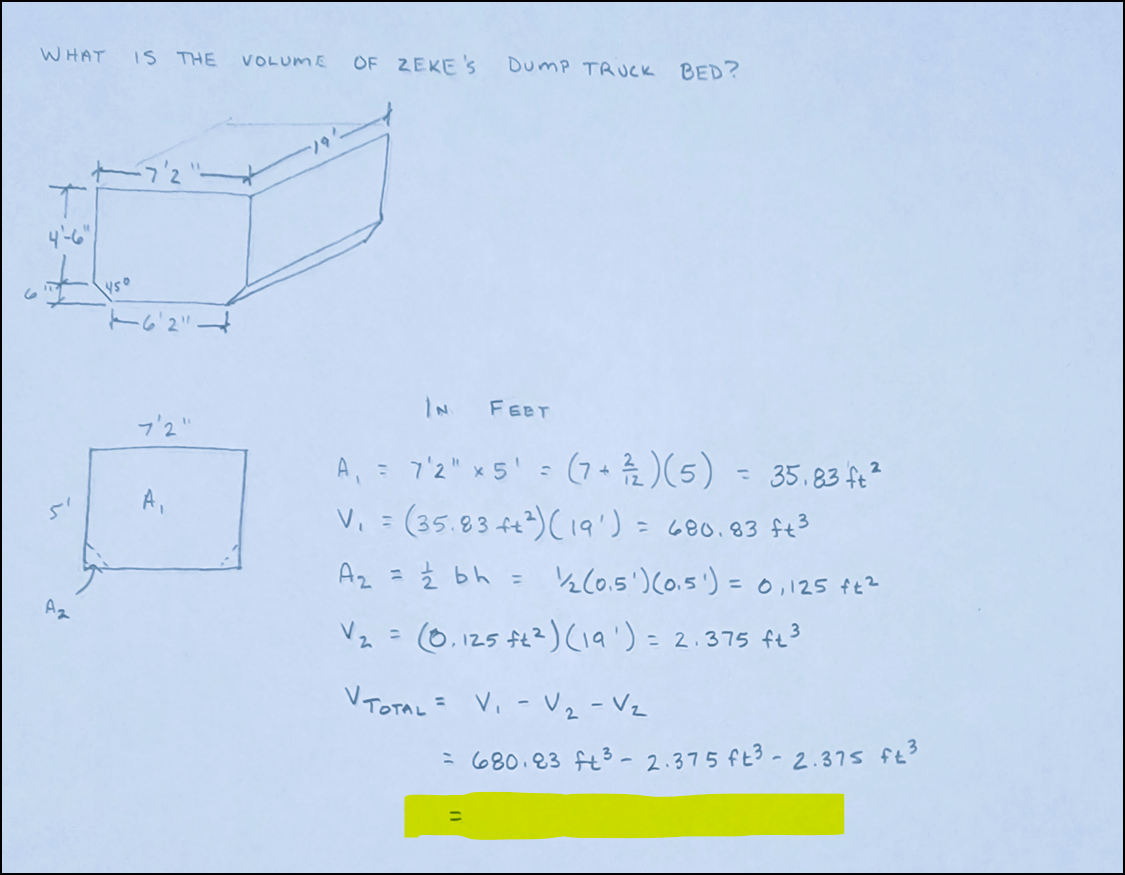 WHAT IS THE VOLUME OF ZEKE'S DUMP TRUCK BED?
19'
7'2"
4'-6"
45°
6"
6'2"
IN FEET
7'2"
A₁ = 7'2" x 5' = (7 + 2/12)(5) = 35.83 ft²
5'
A₁
V₁ = (35.83 ft²)(19') = 680.83 ft³
A₂ = 1/2 bh = 1/2(0.5')(0.5') = 0.125 ft²
A₂
V₂ = (0.125 ft²)(19') = 2.375 ft³
V TOTAL = V₁ - V₂ - V₂
= 680.83 ft³ - 2.375 ft³ - 2.375 ft³
=